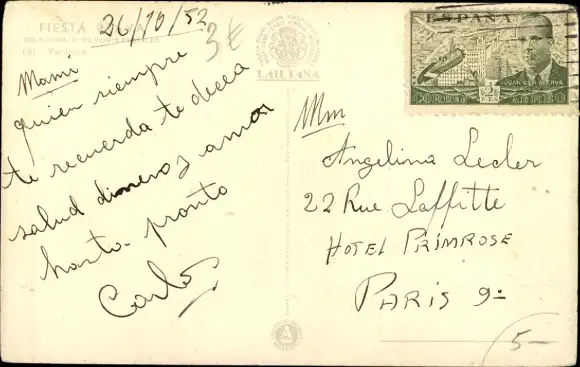 26/10/52
FIESTA
(5) - Verónica
3€
Mami
quien siempre
te recuerda te decea
salud dinero y amor
hasta pronto
Carlos
ESPAÑA
JUAN DE LA CIERVA
2 PTS
CORREO AEREO
Mm
Angelina Lecler
22 Rue Laffitte
HOTEL PRIMROSE
PARIS 9e
5-